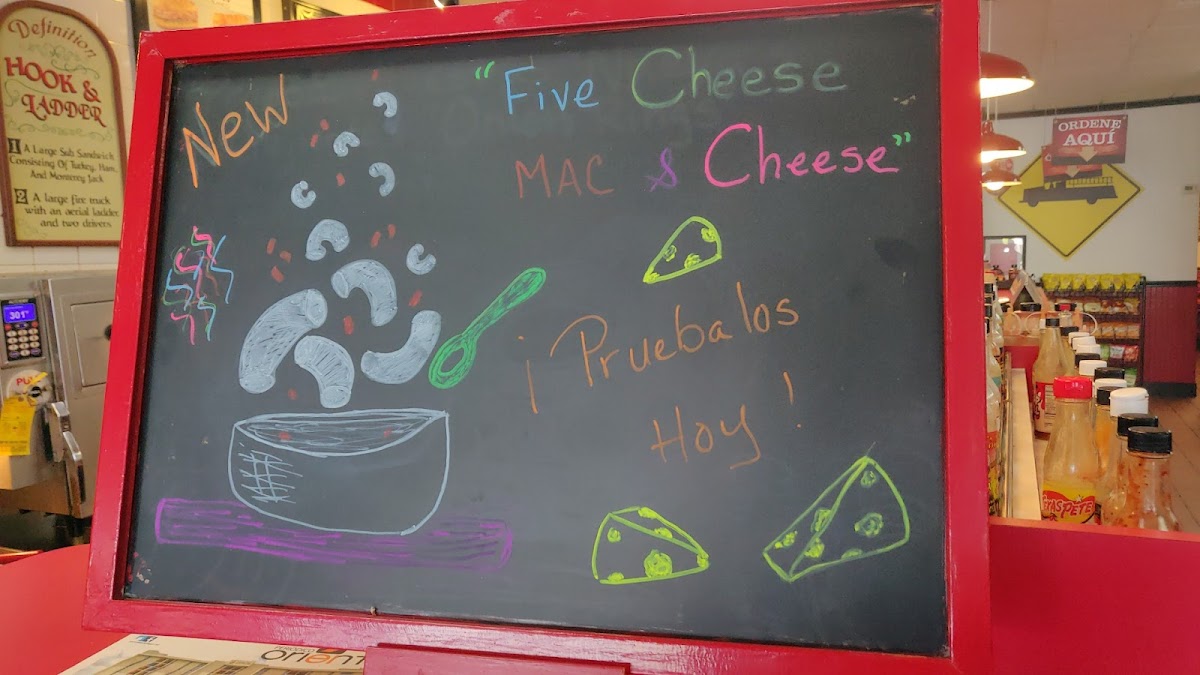 Definition
HOOK &
LADDER
1 A Large Sub Sandwich
Consisting Of Turkey, Ham,
And Monterey Jack
2 A large fire truck
with an aerial ladder
and two drivers
New
"Five Cheese
MAC & Cheese"
¡Pruebalos
Hoy!
ORDENE
AQUÍ
301°
PULL
PERIODICO